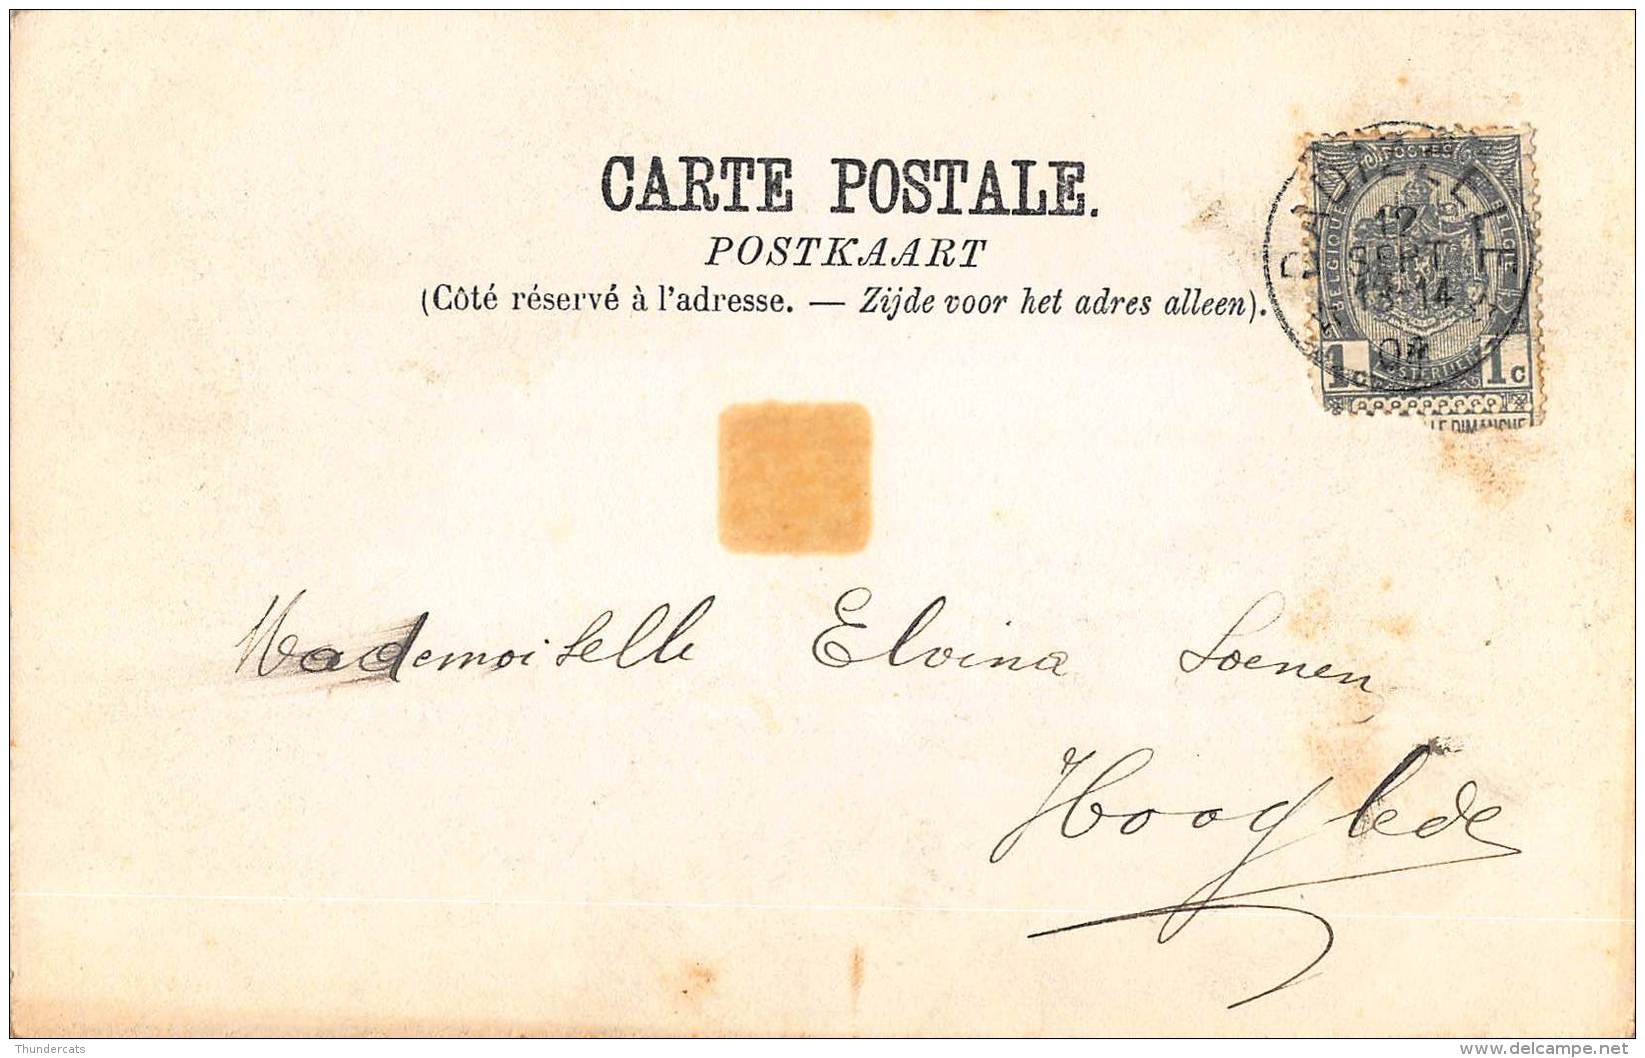 CARTE POSTALE.
POSTKAART
(Côté réservé à l'adresse. — Zijde voor het adres alleen).
12
SEPT
13-14
BELGIQUE
BELGIE
1c 1c
LE DIMANCHE
Mademoiselle Elvina Soenen
Hooglede
Thundercats
delcampe.net